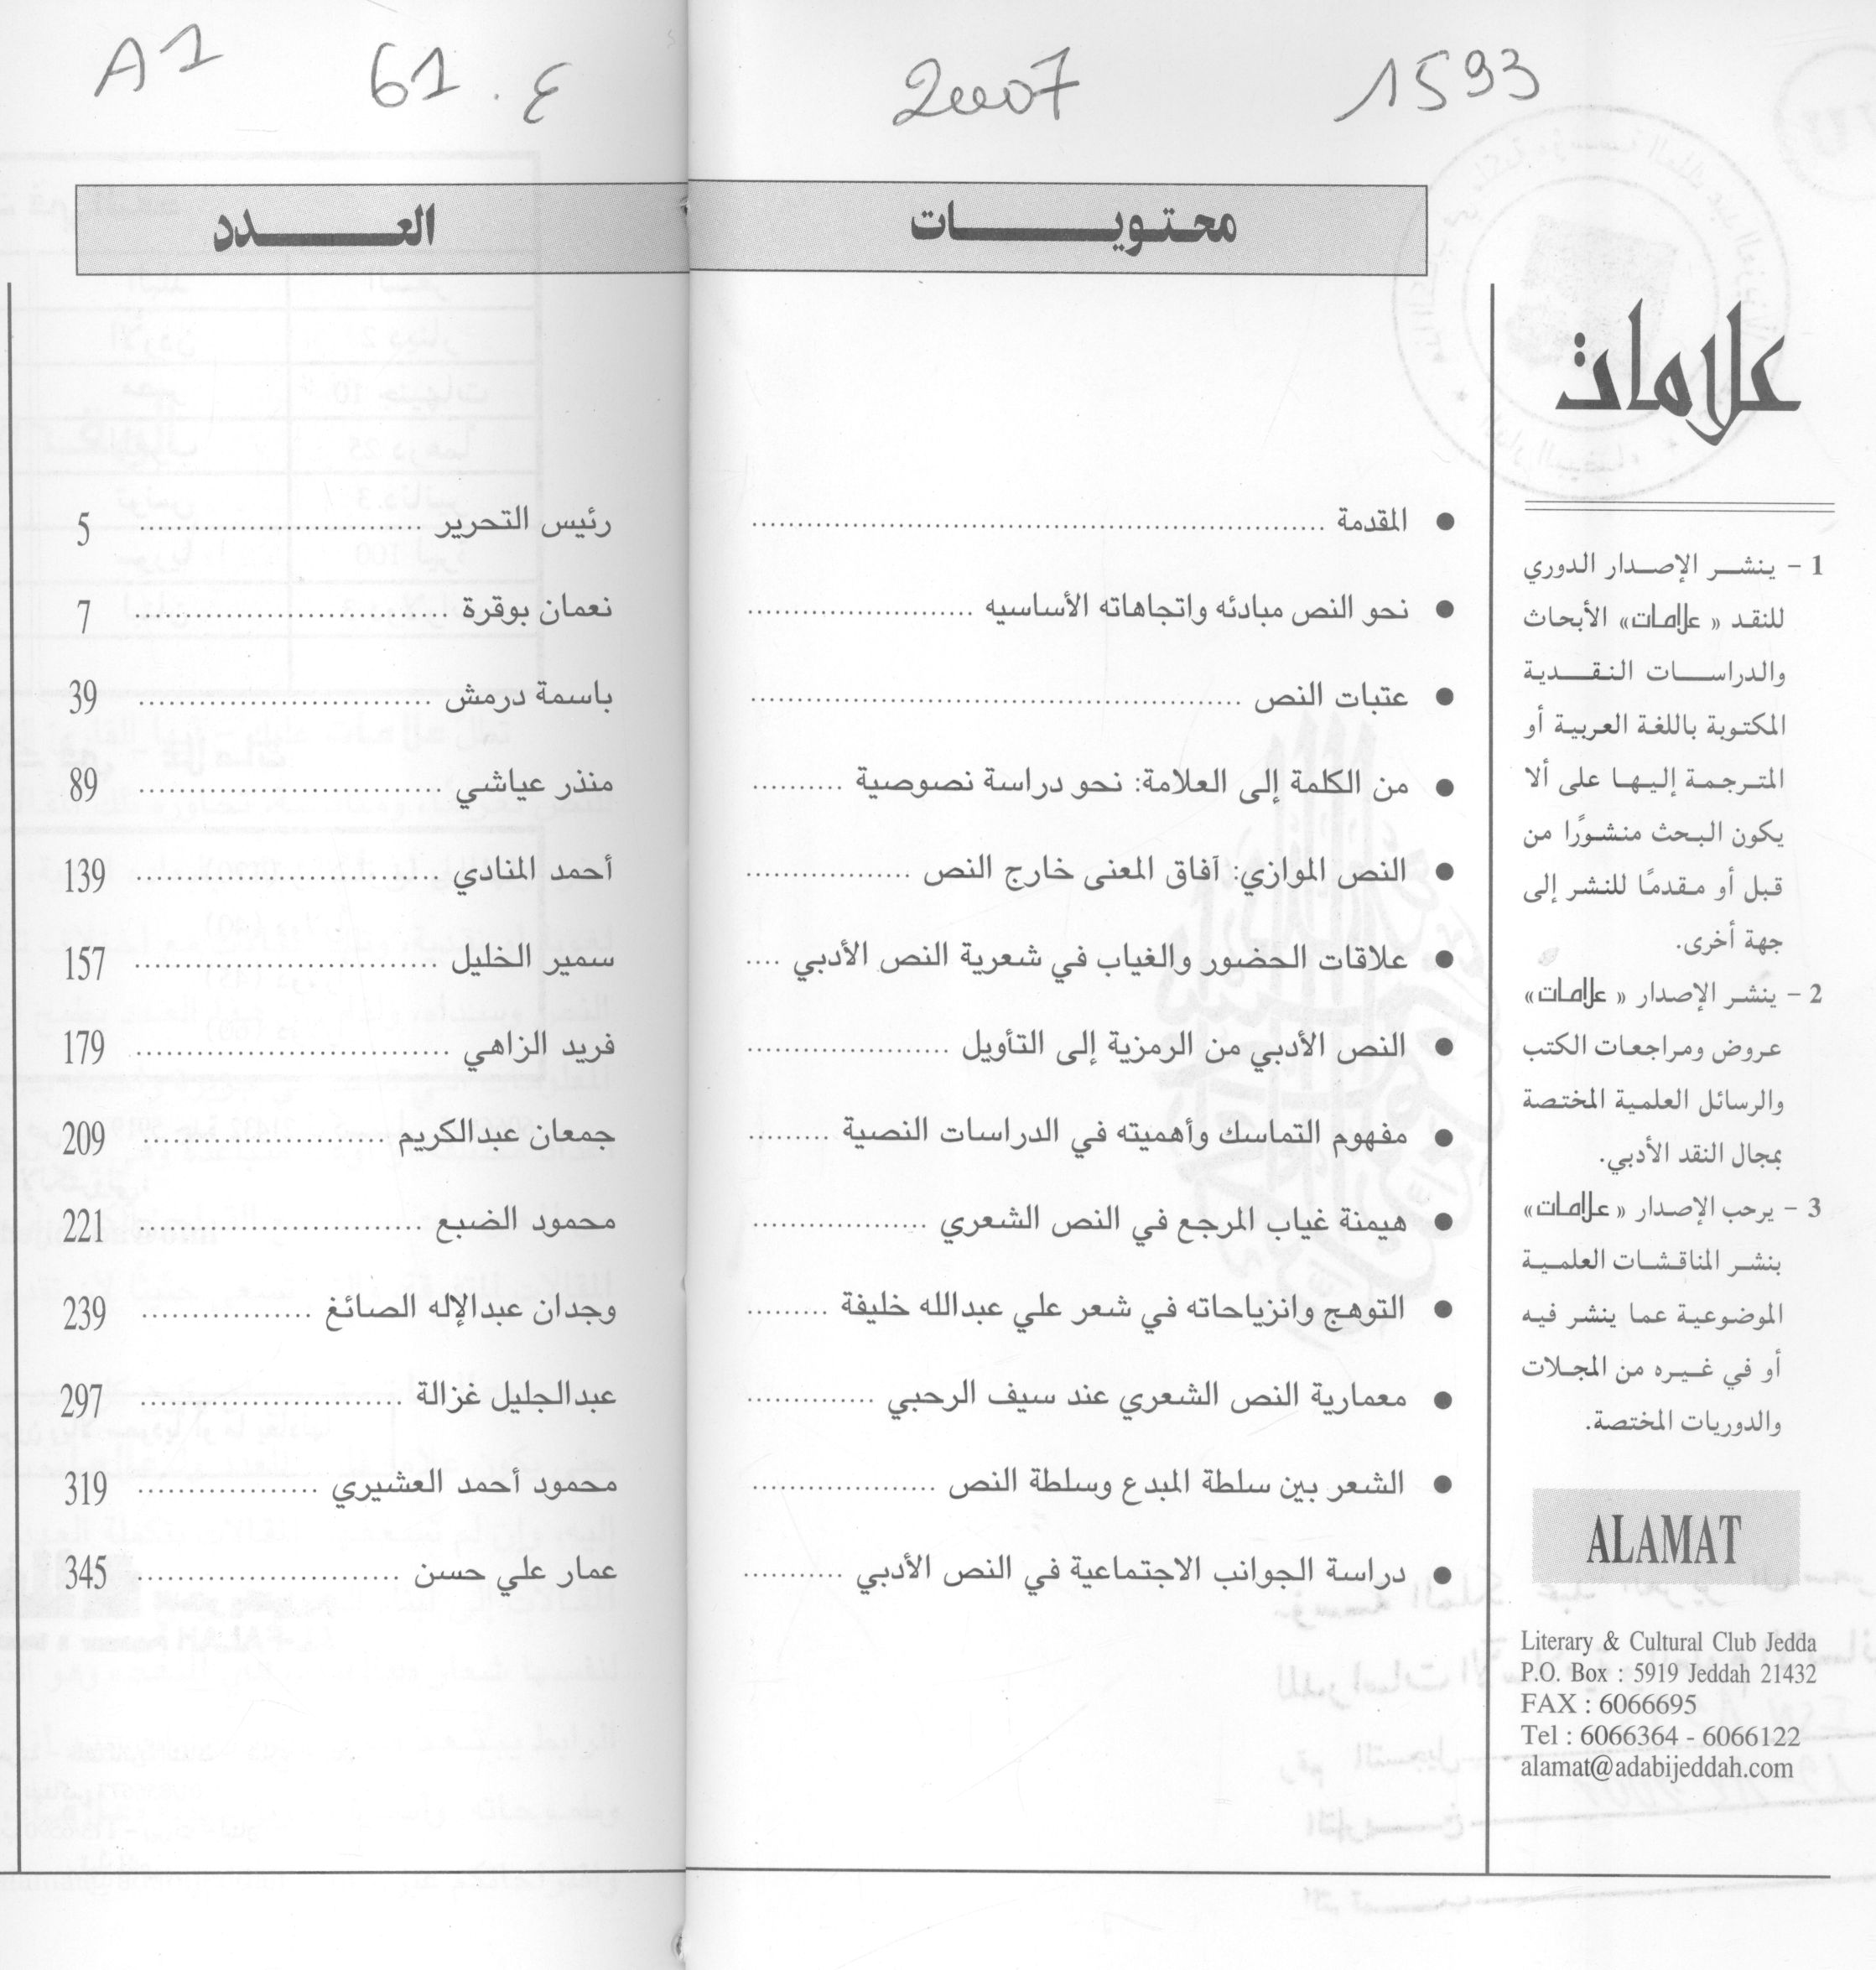 A1 61.ع 2007 1593
محتويات العدد
علامات
1 - ينشر الإصدار الدوري
للنقد « علامات» الأبحاث
والدراسات النقدية
المكتوبة باللغة العربية أو
المترجمة إليها على ألا
يكون البحث منشورًا من
قبل أو مقدمًا للنشر إلى
جهة أخرى.
2 - ينشر الإصدار « علامات»
عروض ومراجعات الكتب
والرسائل العلمية المختصة
بمجال النقد الأدبي.
3 - يرحب الإصدار « علامات»
بنشر المناقشات العلمية
الموضوعية عما ينشر فيه
أو في غيره من المجلات
والدوريات المختصة.
ALAMAT
Literary & Cultural Club Jedda
P.O. Box : 5919 Jeddah 21432
FAX : 6066695
Tel : 6066364 - 6066122
alamat@adabijeddah.com
● المقدمة ........ رئيس التحرير ........ 5
● نحو النص مبادئه واتجاهاته الأساسيه ........ نعمان بوقرة ........ 7
● عتبات النص ........ باسمة درمش ........ 39
● من الكلمة إلى العلامة: نحو دراسة نصوصية ........ منذر عياشي ........ 89
● النص الموازي: آفاق المعنى خارج النص ........ أحمد المنادي ........ 139
● علاقات الحضور والغياب في شعرية النص الأدبي .... سمير الخليل ........ 157
● النص الأدبي من الرمزية إلى التأويل ........ فريد الزاهي ........ 179
● مفهوم التماسك وأهميته في الدراسات النصية ........ جمعان عبدالكريم ........ 209
● هيمنة غياب المرجع في النص الشعري ........ محمود الضبع ........ 221
● التوهج وانزياحاته في شعر علي عبدالله خليفة ........ وجدان عبدالإله الصائغ ........ 239
● معمارية النص الشعري عند سيف الرحبي ........ عبدالجليل غزالة ........ 297
● الشعر بين سلطة المبدع وسلطة النص ........ محمود أحمد العشيري ........ 319
● دراسة الجوانب الاجتماعية في النص الأدبي ........ عمار علي حسن ........ 345